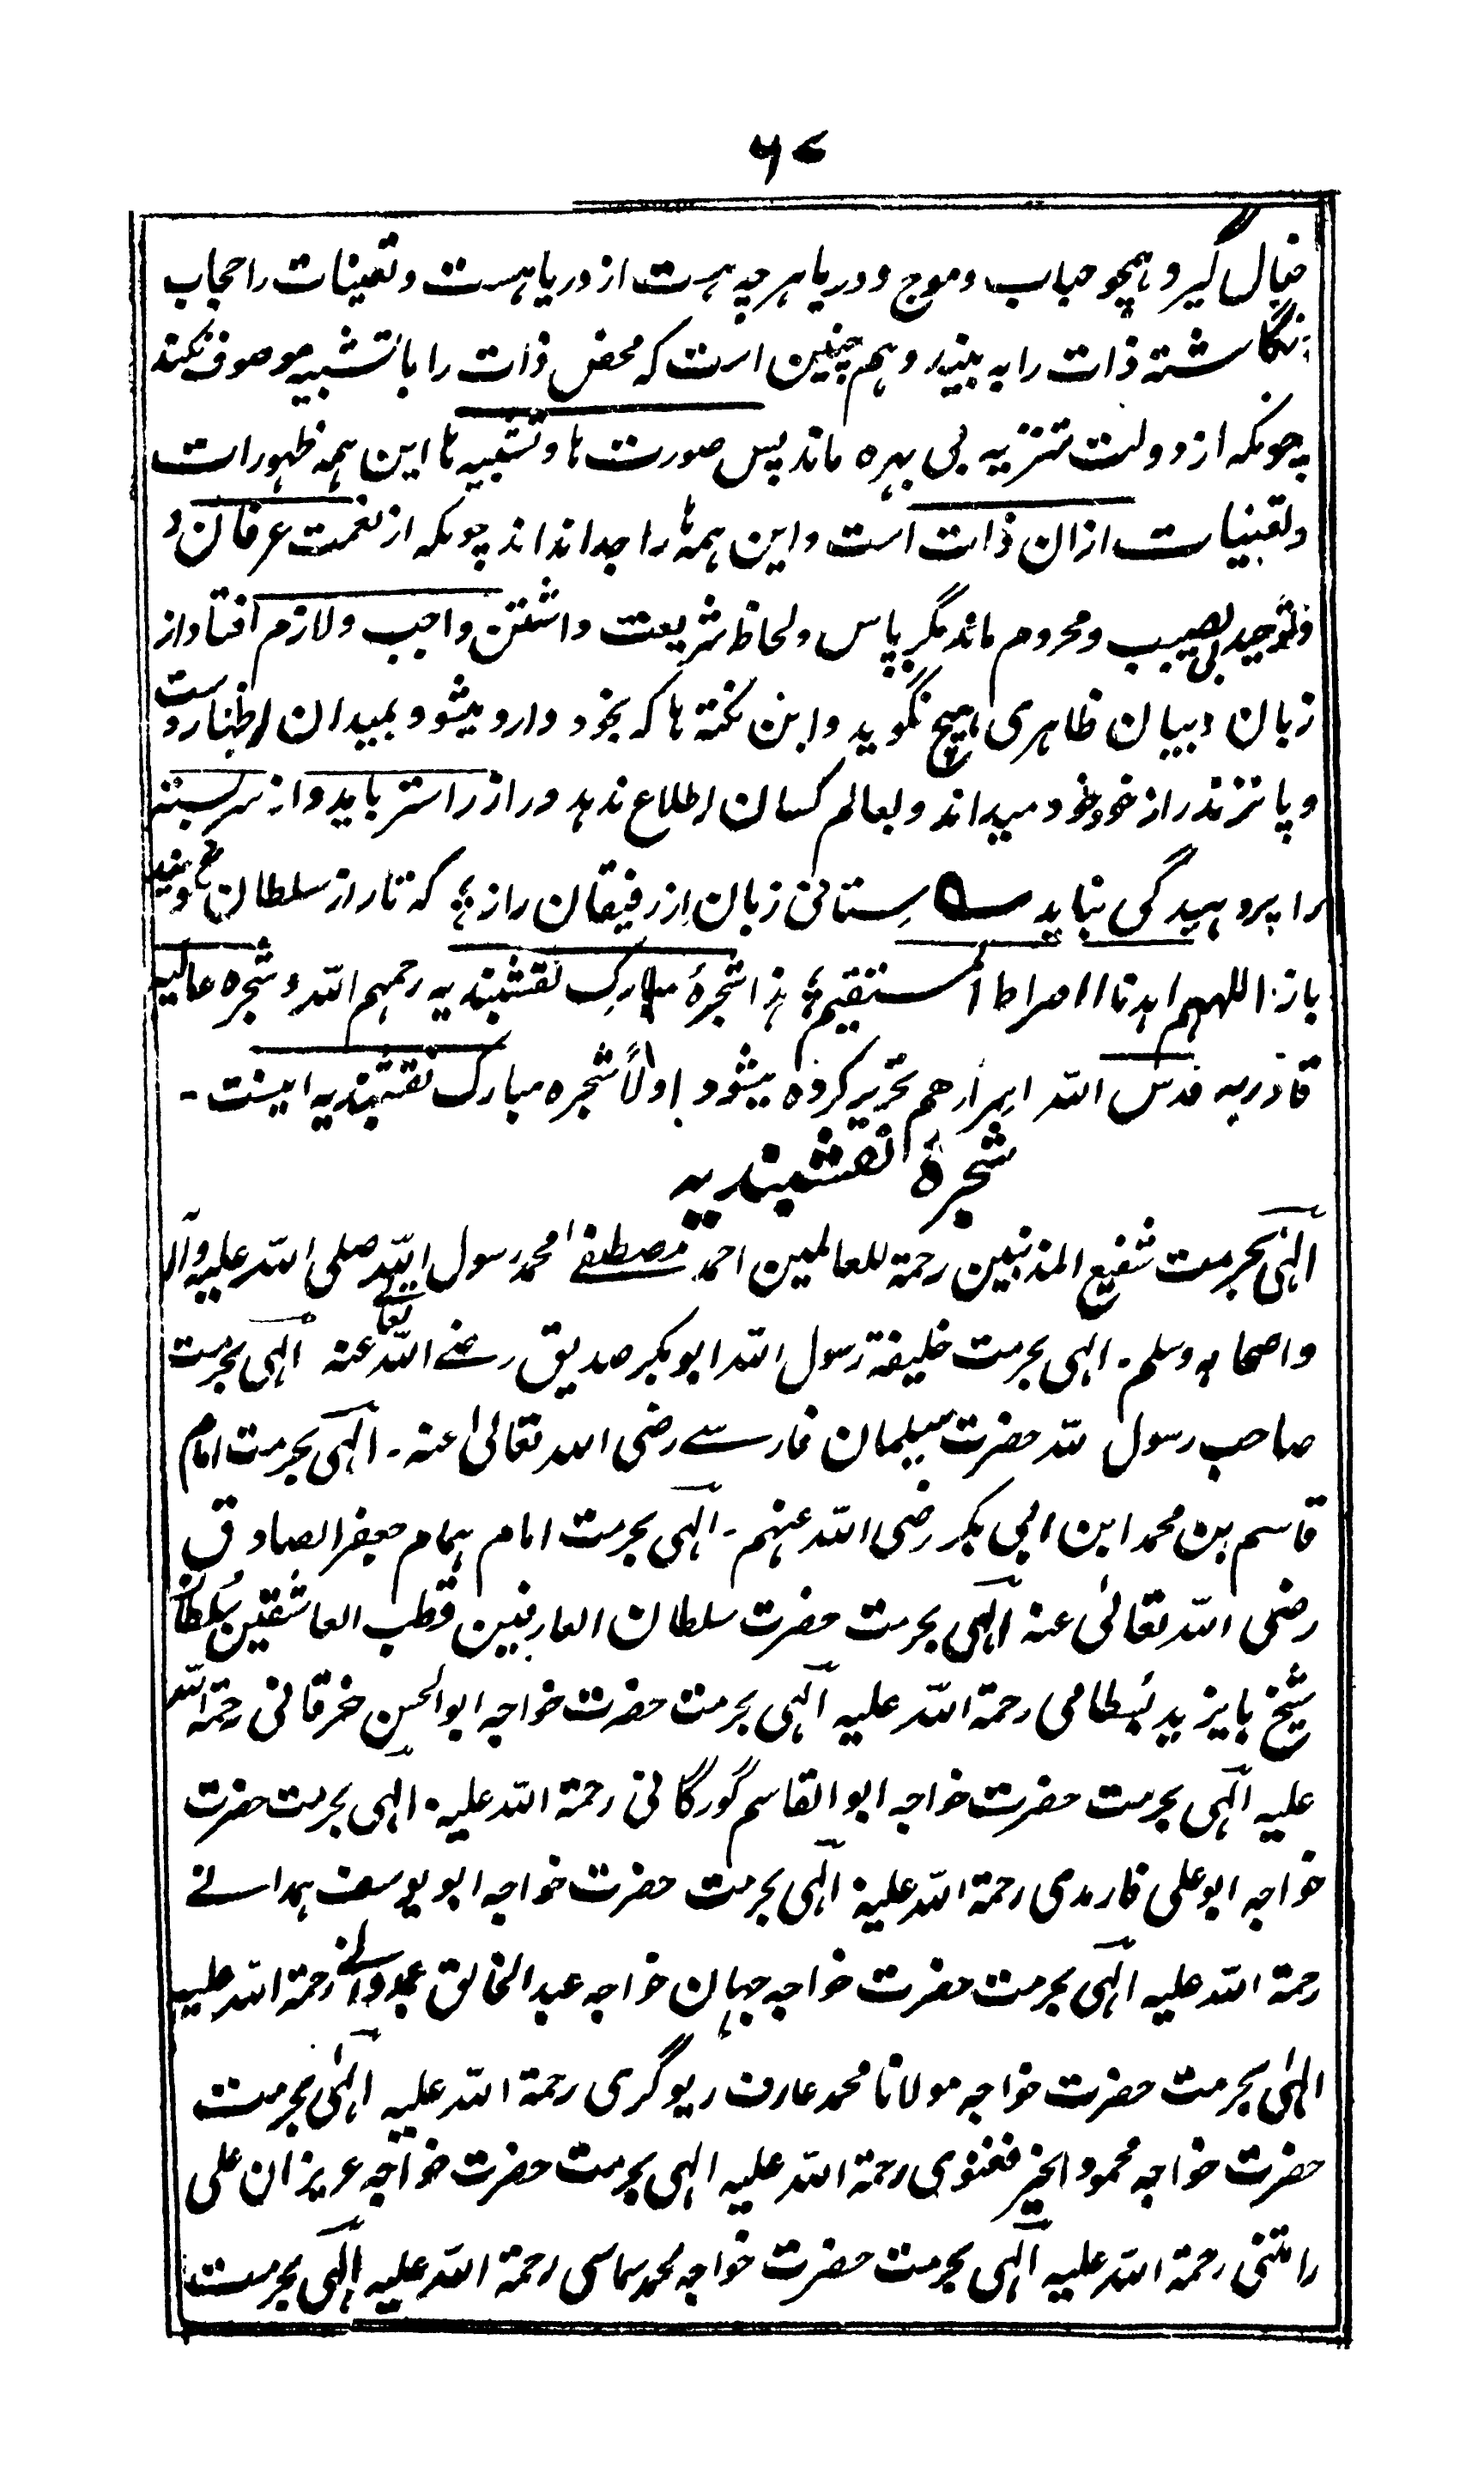 ۶۷
خیال گیرد و ہمچو حباب و موج و دریا ہرچہ ہست از دریا ہست و تعینات را حجاب
انگاشتہ ذات را بہ بیند و ہم چنین است کہ محض ذات را با تشبیہ موصوف نکند
چونکہ از دولت تنزیہ بی بہرہ ماند پس صورت ہا و تشبیہ ہا این ہمہ ظہورات
و تعینات ازان ذات است و این ہمہ را جدا نداند چونکہ از نعمت عرفان
و توحید بی نصیب و محروم ماند مگر پاس و لحاظ شریعت داشتن واجب و لازم افتاد از
زبان و بیان ظاہری ہیچ نگوید و این نکتہ ہا کہ بخود وارد میشود بمیدان اظہار دست
و پا نزند راز خود خود میداند و بعالم کسان اطلاع ندہد و راز را ستر باید و از سربستہ
را پردہ دیدگی نباید ستانی زبان از رفیقان راز ؛ کہ تا راز سلطان نگویند
باز؛ اللہم اہدنا الصراط المستقیم؛ ہذا شجرۂ مبارک نقشبندیہ رحمہم اللہ و شجرہ عالیہ
قادریہ قدس اللہ اسرارہم تحریر کردہ میشود اولاً شجرہ مبارک نقشبندیہ اینست -
شجرۂ نقشبندیہ
الٰہی بحرمت شفیع المذنبین رحمۃ للعالمین احمد مصطفےٰ محمد رسول اللہ صلی اللہ علیہ وآلہ
واصحابہ وسلم۔ الہی بحرمت خلیفۃ رسول اللہ ابو بکر صدیق رضے اللہ تعالے عنہ الٰہی بحرمت
صاحب رسول للہ حضرت سلیمان فارسے رضی اللہ تعالیٰ عنہ۔ الٰہی بحرمت امام
قاسم بن محمد ابن ابی بکر رضی اللہ عنہم۔ الٰہی بحرمت امام ہمام جعفر الصادق
رضی اللہ تعالیٰ عنہ الٰہی بحرمت حضرت سلطان العارفین قطب العاشقین سلطان
شیخ بایزید بسطامی رحمۃ اللہ علیہ الٰہی بحرمت حضرت خواجہ ابو الحسن خرقانی رحمۃ اللہ
علیہ الٰہی بحرمت حضرت خواجہ ابو القاسم گورگانی رحمۃ اللہ علیہ۔ الٰہی بحرمت حضرت
خواجہ ابو علی فارمدی رحمۃ اللہ علیہ الٰہی بحرمت حضرت خواجہ ابو یوسف ہمدانے
رحمۃ اللہ علیہ الٰہی بحرمت حضرت خواجہ جہان خواجہ عبد الخالق غجدوانے رحمۃ اللہ علیہ
الٰہی بحرمت حضرت خواجہ مولانا محمد عارف ریوگری رحمۃ اللہ علیہ الٰہی بحرمت
حضرت خواجہ محمود الخیر فغنوی رحمۃ اللہ علیہ الہی بحرمت حضرت خواجہ عزیزان علی
رامتنی رحمۃ اللہ علیہ الٰہی بحرمت حضرت خواجہ محمد سماسی رحمۃ اللہ علیہ الٰہی بحرمت